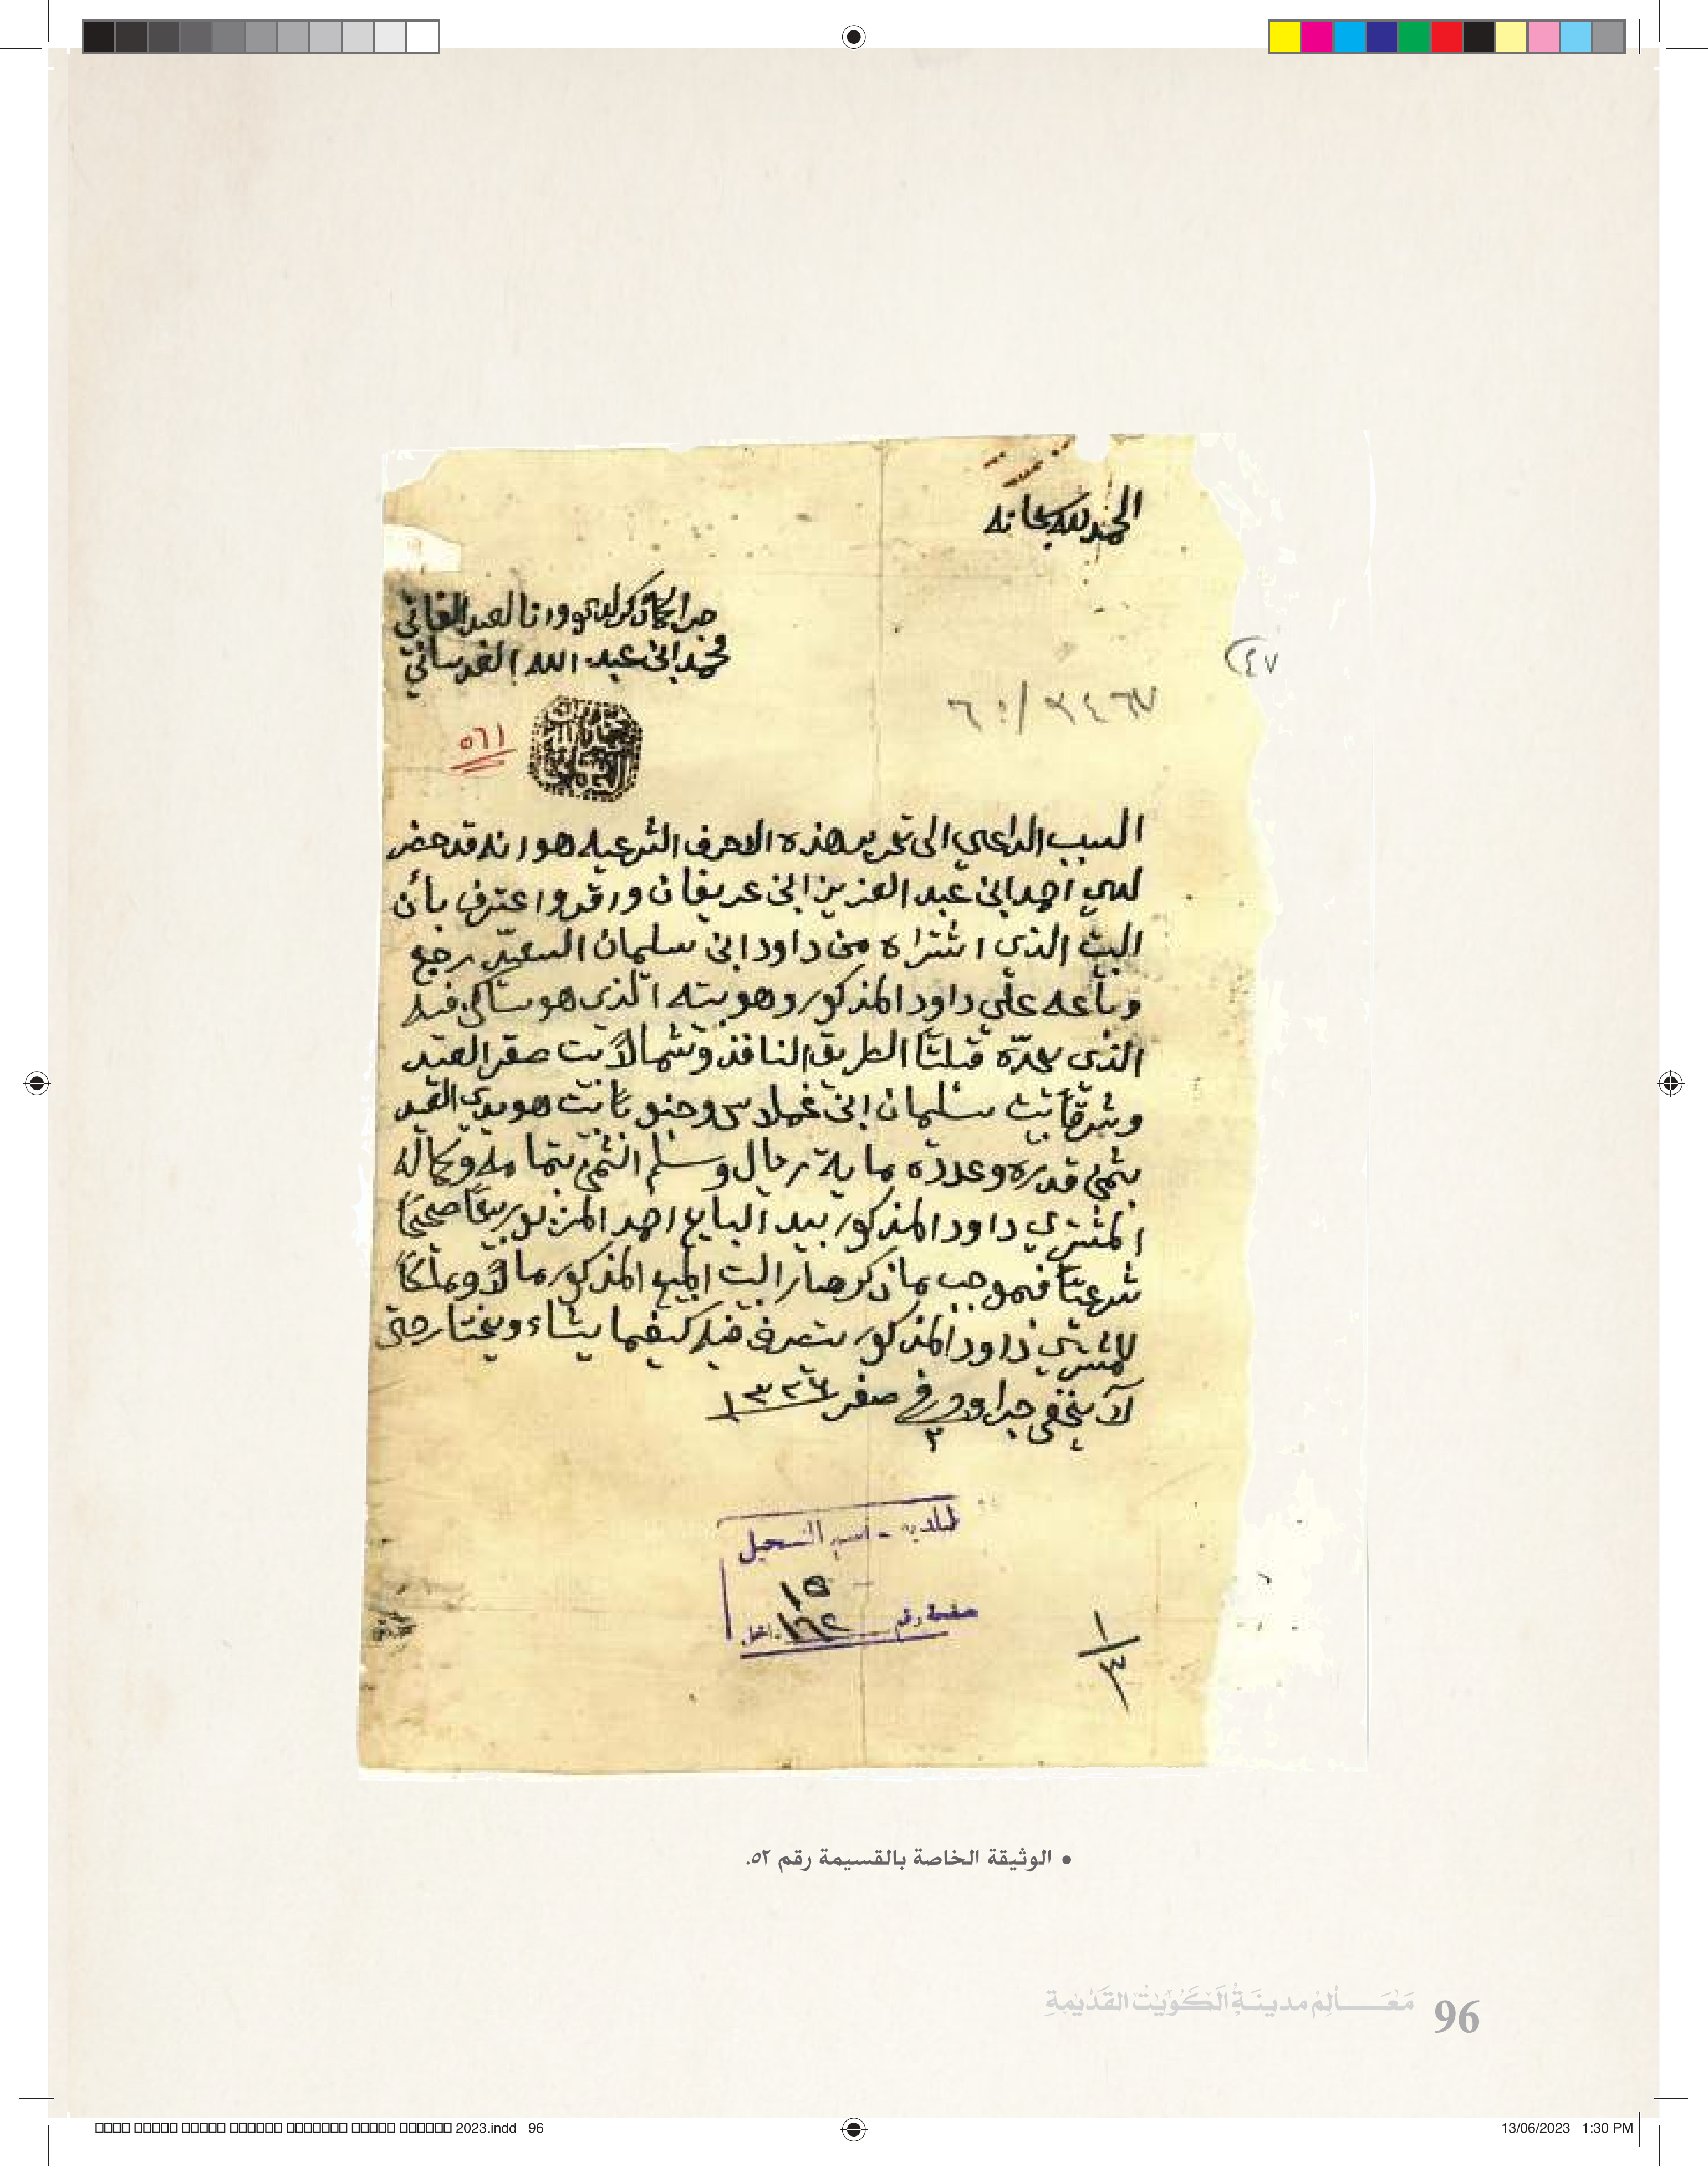 الحمد لله سبحانه
جرا كما ذكر لدي وانا العبد الفاني
محمد ابن عبد الله العدساني
٤٧)
٣٤٦٧
٥٦١
السبب الداعي الى تحرير هذه الاحرف الشرعيه هو انه قد حضر
لدي احمد ابن عبد العزيز ابن عريفان واقر واعترف بأن
البيت الذي اشتراه من داود ابن سليمان السعيّد رجع
وباعه على داود المذكور وهو بيته الذي هو ساكن فيه
الذي يحدّه قبلتاً الطريق النافذ وشمالاً بيت صقر العبد
وشرقاً بيت سليمان ابن غملاس وجنوباً بيت هويدي العبد
بثمن قدره وعدده ماية ريال وسلم الثمن بتمامه وكماله
المشتري داود المذكور بيد البايع احمد المزبور بيعاً صحيحاً
شرعيّاً فبموجب ما ذكر صار البيت المبيع المذكور مالاً وملكاً
للمشتري داود المذكور يتصرف فيه كيفما يشاء ويختار حتى
لا يخفى جرا وحرر في ٢ صفر ١٣٣٦
البلدية - قسم التسجيل
١٥
صفحة رقم ١٦٢
١/٤
• الوثيقة الخاصة بالقسيمة رقم ٥٢.
مَعَـــالِمُ مدينَـةِ الكُوَيْت القَدِيمَة 96
2023.indd 96 13/06/2023 1:30 PM